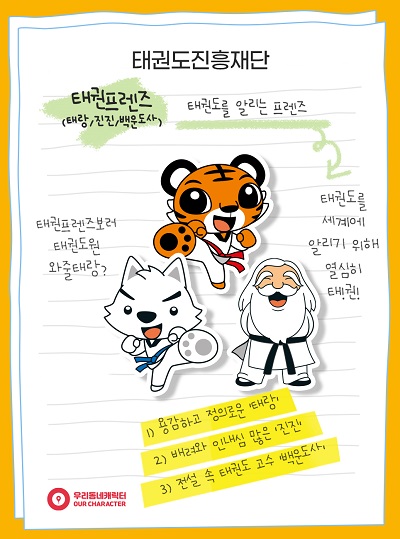 태권도진흥재단
태권프렌즈
(태랑/진진/백운도사)
태권도를 알리는 프렌즈
태권프렌즈보러
태권도원
와줄태랑?
태권도를
세계에
알리기 위해
열심히
태!권!
1) 용감하고 정의로운 '태랑'
2) 배려와 인내심 많은 '진진'
3) 전설 속 태권도 고수 '백운도사'
우리동네캐릭터
OUR CHARACTER